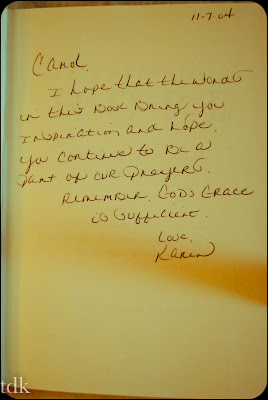 11-7-04
Carol.
I hope that the words
in this book bring you
inspiration and hope.
You continue to be a
part of our prayers.
Remember, God's Grace
is sufficient.
Love,
Karen
tdk